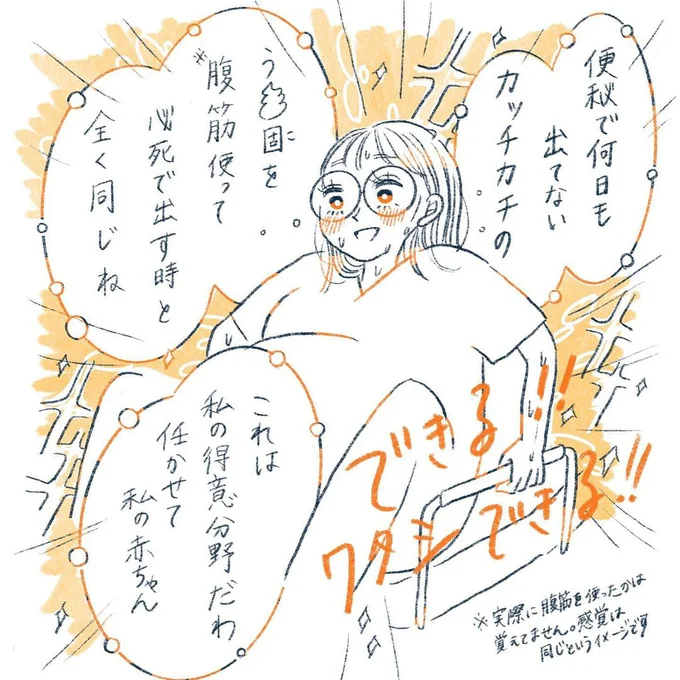 便秘で何日も
出てない
カッチカチの
う💩固を
※腹筋使って
必死で出す時と
全く同じね
これは
私の得意分野だわ
任かせて
私の赤ちゃん
できる!!
ワタシできる!!
※実際に腹筋を使ったかは
覚えてません。感覚は
同じというイメージです